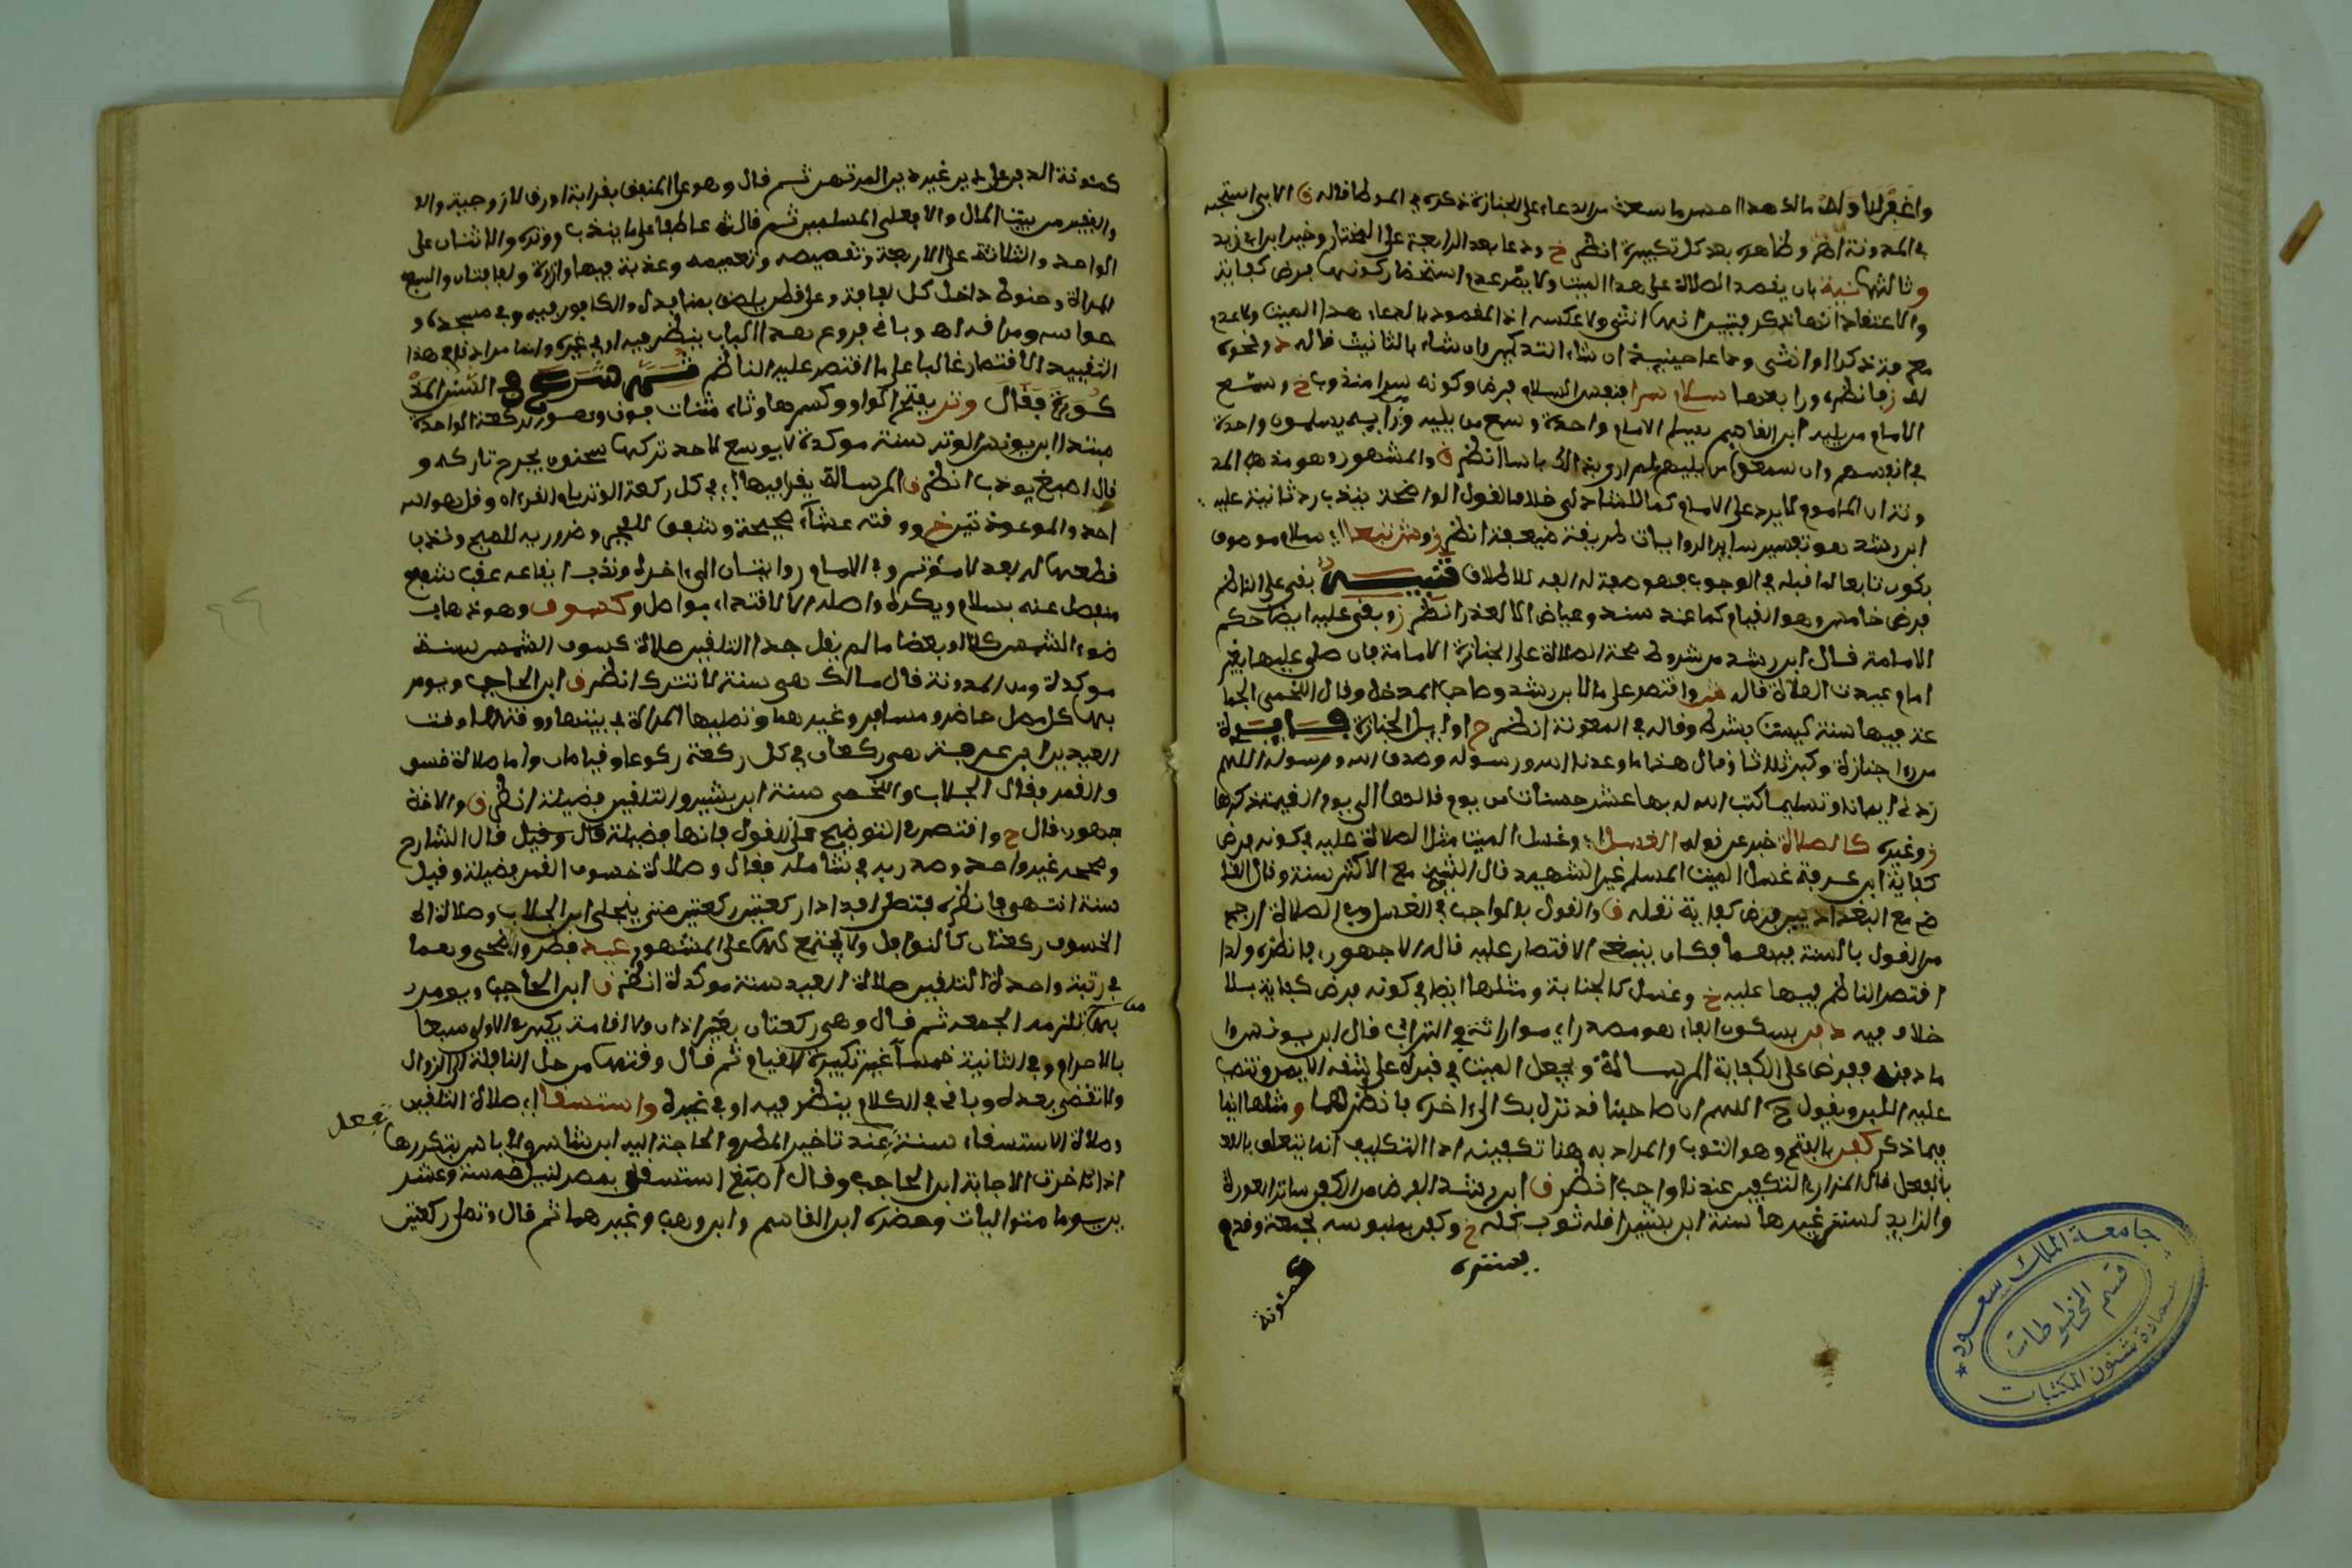 واغفر لنا وله مالك هذا احسن ما سمعت من الدعاء على الجنازة ذكره في الموطا قاله ق الابي استحبه
في المدونة اهـ وظاهره بعد كل تكبيرة انظر خ ودعا بعد الرابعة على المختار وخير ابن ابي زيد
وثالثها نية بان يقصد الصلاة على هذا الميت ولا يضر عدم استحضار كونها فرض كفاية
والاعتقاد انها ذكر فتبين انها انثى ولا عكسه اذ المقصود بالدعاء هذا الميت ولا عدم
معرفته ذكرا او انثى ودعا حينئذ ان شاء بالتذكير وان شاء بالتانيث قاله ونحوه
لـ ز فانظره ورابعها سلام سرا فنفس السلام فرض وكونه سرا مندوب خ وسمع
الامام من يليه ابن القاسم يسلم الامام واحدة ويسمع من يليه ومن ورايه يسلمون واحدة
في انفسهم وان سمعوا من يليهم لم ار بذلك باسا انظر ق والمشهور وهو مذهب المد
ونة ان الماموم لا يرد على الامام كما للشاذلي خلافا لقول الواضحة يندب رد ثانية عليه
ابن رشد هو تفسير ساير الروايات طريقة ضعيفة انظر ز وشر تبعا اي سلام موصوف
بكون تابعا لما قبله في الوجوب فهو صفة له الفه للاطلاق تنبيه بقي على الناظم
فرض خامس وهو القيام كما عند سند وعياض الا لعذر انظر ز وبقي عليه ايضا حكم
الامامة قال ابن رشد من شروط صحة الصلاة على الجنازة الامامة فان صلي عليها بغير
امام اعيدت الصلاة قاله واقتصر على ما لابن رشد وصاحب المدخل وقال اللخمي الجما
عة فيها سنة ليست بشرط وقاله في المعونة انظر ح اوايل الجنازة فايدة
من را جنازة وكبر ثلاثا وقال هذا ما وعدنا الله ورسوله وصدق الله ورسوله اللهم
زدني ايمانا وتسليما كتب الله له بها عشر حسنات من يوم قالها الى يوم القيمة ذكرها
ز وغيره كالصلاة خبر عن قوله الغسل اي وغسل الميت مثل الصلاة عليه في كونه فرض
كفاية ابن عرفة غسل الميت المسلم غير الشهيد قال الشيخ مع الاكثر سنة وقال القا
ضي مع البغداديين فرض كفاية نقله ق والقول بالواجب في الغسل وفي الصلاة ارجح
من القول بالسنة فيهما فكان ينبغي الاقتصار عليه قاله الاجهوري فانظره ولذا
اقتصر الناظم فيها عليه خ وغسل كالجنابة ومثلها ايضا في كونه فرض كفاية بلا
خلاف فيه دفن بسكون الفاء هو مصدر اي مواراته في التراب قال ابن يونس وا
ما دفنه ففرض على الكفاية الرسالة ويجعل الميت في قبره على شقه الايمن وتنصب
عليه اللبن ويقول ح اللهم ان صاحبنا قد نزل بك الى اخره فانظرهما ومثلها ايضا
فيما ذكر كفن بالفتح وهو الثوب والمراد به هنا تكفينه اذ التكليف انما يتعلق بالـ
بالفعل قال المازري التكفين عندنا واجب انظر ق ابن رشد الفرض من الكفن ساتر العورة
والزايد لستر غيرها سنة ابن بشير اقله ثوب كله خ وكفن بملبوسه لجمعة وقدم
بسترة
كمئونة
كمئونة الدفن على دين غير دين المرتهن ثم قال وهو على المنفق بقرابة او رق لا زوجية والا
والفقير من بيت المال والا فعلى المسلمين ثم قال عاطفا على ما يندب ووتره والاثنان على
الواحد والثلاثة على الاربعة وتقميصه وتعميمه وعذبة فيها وازرة ولفافتان والسبع
للمراة وحنوط داخل كل لفافة وعلى قطن يلصق بمنافذه والكافور فيه وفي مسجده و
حواسه ومراقه اهـ وباقي فروع هذا الباب ينظر فيه او في غيره وانما مرادنا في هذا
التقييد الاقتصار غالبا على ما اقتصر عليه الناظم ثم شرع في السنن المذ
كورة فقال وتر بفتح الواو وكسرها وثاء مثنات فوق وهو الركعة الواحدة
مبتدا ابن يونس الوتر سنة موكدة لا يوسع لاحد تركها سحنون يجرح تاركه و
قال اصبغ يودب انظر ق الرسالة يقرا فيها اي في كل ركعة الوتر بام القران وقل هو الله
احد والمعوذتين خ ووقته عشاء صحيحة وشفق للفجر وضروريه للصبح وندب
قطعها له لفذ لا مؤتم وفي الامام روايتان الى اخره وندب ايقاعه عقب شفع
منفصل عنه بسلام ويكره واصله الا لاقتداء بواصل وكسوف وهو ذهاب
ضوء الشمس كلا او بعضا ما لم يقل جدا التلقين صلاة كسوف الشمس سنة
موكدة ومن المدونة قال مالك هي سنة لا تترك انظر ق ابن الحاجب ويومر
بها كل مصل حاضر ومسافر وغيرهما وتصليها المراة في بيتها ووقتها وقت
العيدين ابن عرفة هي ركعتان في كل ركعة ركوعان وقيامان واما صلاة خسو
ف القمر فقال الجلاب واللخمي سنة ابن بشير والتلقين فضيلة انظر ق والا
جهوري قال ح واقتصر في التوضيح على القول بانها فضيلة قال وقيل قال الشارح
وصححه غير واحد وصدر به في شامله فقال وصلاة خسوف القمر فضيلة وقيل
سنة انتهى فانظره فتصلى افذاذا ركعتين ركعتين حتى ينجلي ابن الجلاب وصلاة
الخسوف ركعتان كالنوافل ولا يجتمع لها على المشهور عيد فطر واضحى وهما
في رتبة واحدة التلقين صلاة العيد سنة موكدة انظر ق ابن الحاجب ويومر
بها من تلزمه الجمعة ثم قال وهي ركعتان بغير اذان ولا اقامة يكبر في الاولى سبعا
بالاحرام وفي الثانية خمسا غير تكبيرة القيام ثم قال ووقتها من حل النافلة الى الزوال
ولا تقضى بعده وباقي الكلام ينظر فيه او في غيره واستسقا اي صلاة التلقين
وصلاة الاستسقاء سنة تفعل عند تاخير المطر والحاجة اليه ابن شاس ولا باس بتكررها
اذا تاخرت الاجابة ابن الحاجب وقال اصبغ استسقي بمصر لنيل خمسة وعشر
ين يوما متواليات وحضره ابن القاسم وابن وهب وغيرهما ثم قال وتصلى ركعتين
جامعة الملك سعود
قسم المخطوطات
عمادة شئون المكتبات